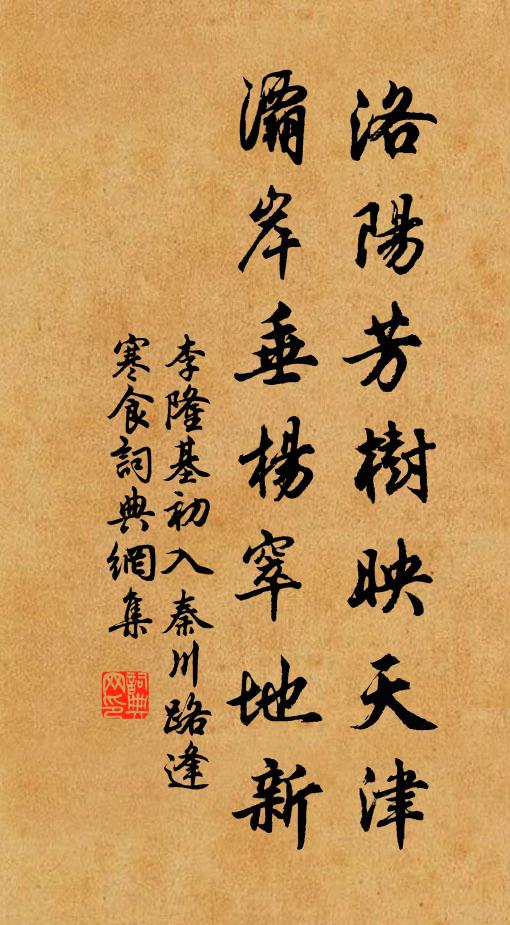 洛陽芳樹映天津
灞岸垂楊窣地新
李隆基初入秦川路逢
寒食詞典網集
詞典网印